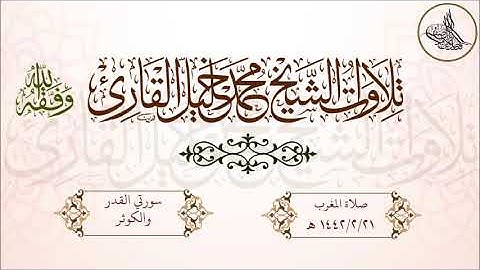 تلاوات الشيخ محمد خليل القارئ
وفقه الله
صلاة المغرب
١٤٤٢/٢/٢١ هـ
سورتي القدر
والكوثر